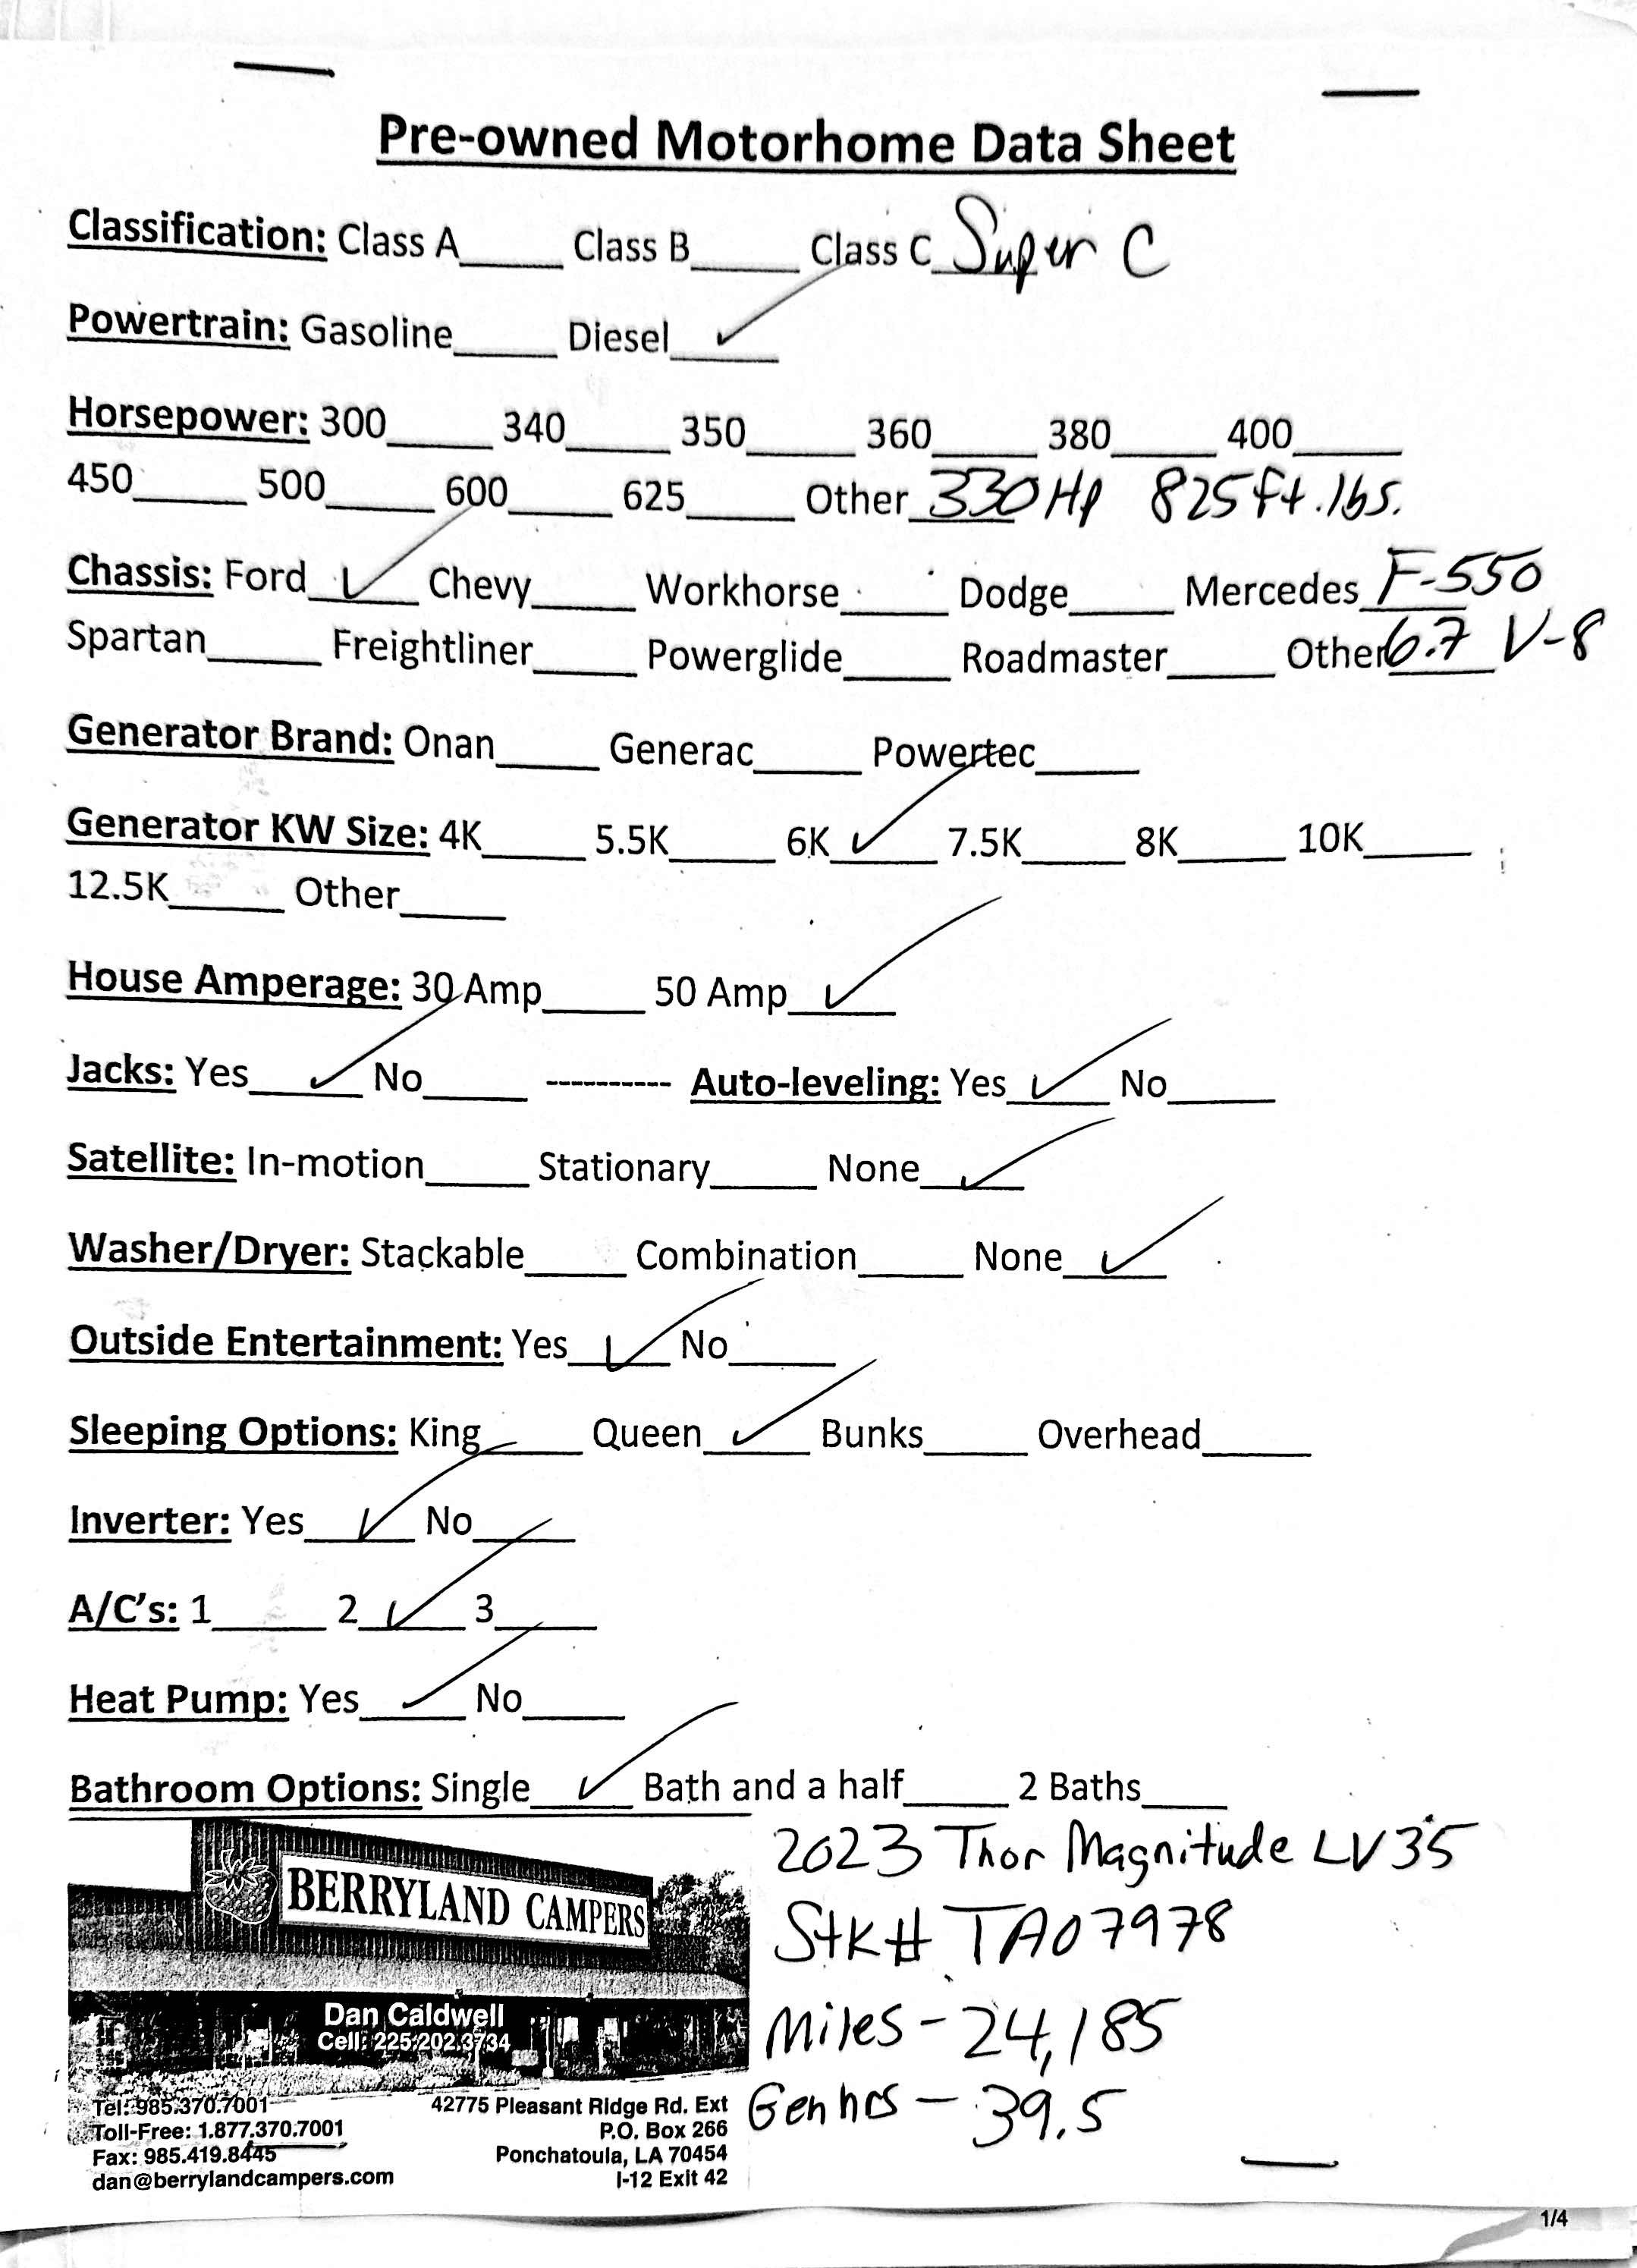 Pre-owned Motorhome Data Sheet
Classification: Class A_____ Class B_____ Class C_Super C
Powertrain: Gasoline_____ Diesel__✓__
Horsepower: 300_____ 340_____ 350_____ 360_____ 380_____ 400_____
450_____ 500_____ 600_____ 625_____ Other_330 Hp 825 ft.lbs.
Chassis: Ford__✓__ Chevy_____ Workhorse_____ Dodge_____ Mercedes_F-550
Spartan_____ Freightliner_____ Powerglide_____ Roadmaster_____ Other 6.7 V-8
Generator Brand: Onan_____ Generac_____ Powertec_____
Generator KW Size: 4K_____ 5.5K_____ 6K__✓__ 7.5K_____ 8K_____ 10K_____
12.5K_____ Other_____
House Amperage: 30 Amp_____ 50 Amp__✓__
Jacks: Yes__✓__ No_____ ---------- Auto-leveling: Yes__✓__ No_____
Satellite: In-motion_____ Stationary_____ None__✓__
Washer/Dryer: Stackable_____ Combination_____ None__✓__
Outside Entertainment: Yes__✓__ No_____
Sleeping Options: King_____ Queen__✓__ Bunks_____ Overhead_____
Inverter: Yes__✓__ No_____
A/C's: 1_____ 2__✓__ 3_____
Heat Pump: Yes__✓__ No_____
Bathroom Options: Single__✓__ Bath and a half_____ 2 Baths____
2023 Thor Magnitude LV35
Stk# TA07978
Miles - 24,185
Gen hrs - 39.5
BERRYLAND CAMPERS
Dan Caldwell
Cell: 225.202.3734
Tel: 985.370.7001
Toll-Free: 1.877.370.7001
Fax: 985.419.8445
dan@berrylandcampers.com
42775 Pleasant Ridge Rd. Ext
P.O. Box 266
Ponchatoula, LA 70454
I-12 Exit 42
1/4